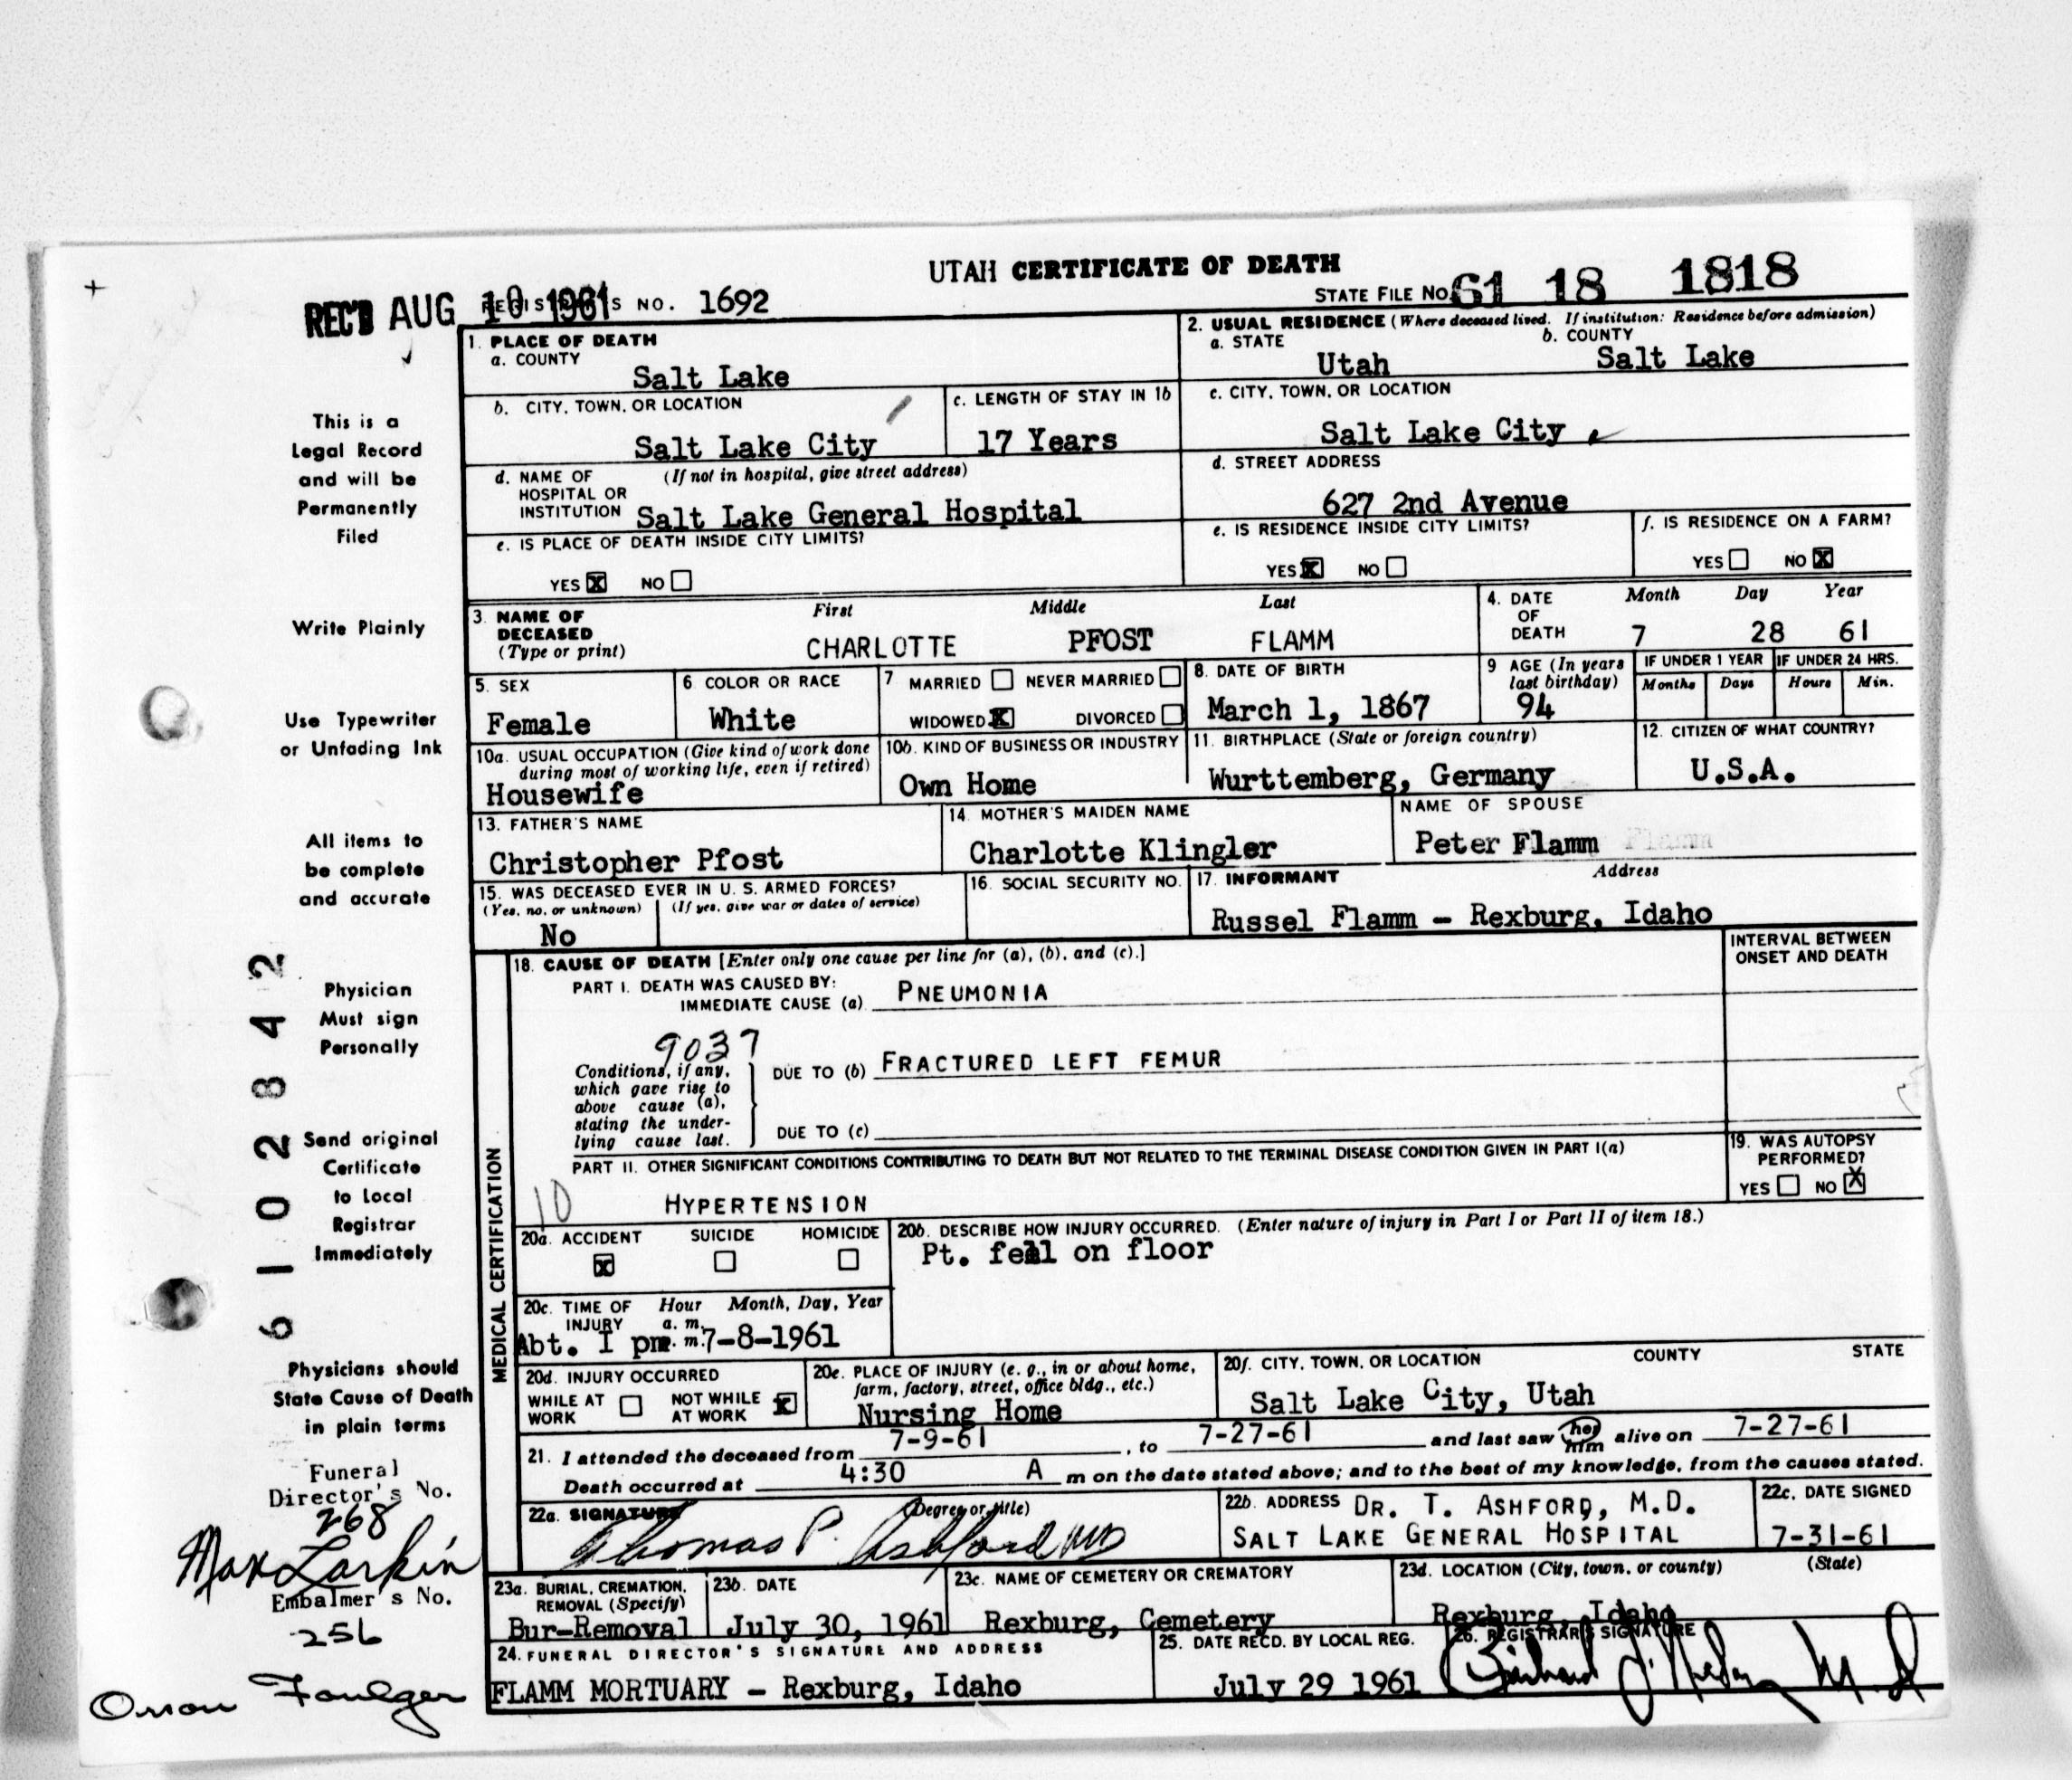 UTAH CERTIFICATE OF DEATH
REC'D AUG 10 1961
NO. 1692
STATE FILE NO. 61 18 1818
1. PLACE OF DEATH
a. COUNTY
Salt Lake
2. USUAL RESIDENCE (Where deceased lived. If institution: Residence before admission)
a. STATE
Utah
b. COUNTY
Salt Lake
b. CITY, TOWN, OR LOCATION
Salt Lake City
c. LENGTH OF STAY IN 1b
17 Years
c. CITY, TOWN, OR LOCATION
Salt Lake City
d. NAME OF HOSPITAL OR INSTITUTION
(If not in hospital, give street address)
Salt Lake General Hospital
d. STREET ADDRESS
627 2nd Avenue
e. IS PLACE OF DEATH INSIDE CITY LIMITS?
YES X NO
e. IS RESIDENCE INSIDE CITY LIMITS?
YES X NO
f. IS RESIDENCE ON A FARM?
YES NO X
3. NAME OF DECEASED
(Type or print)
First Middle Last
CHARLOTTE PFOST FLAMM
4. DATE OF DEATH
Month Day Year
7 28 61
5. SEX
Female
6. COLOR OR RACE
White
7 MARRIED NEVER MARRIED
WIDOWED X DIVORCED
8. DATE OF BIRTH
March 1, 1867
9 AGE (In years last birthday)
94
IF UNDER 1 YEAR
Months Days
IF UNDER 24 HRS.
Hours Min.
10a. USUAL OCCUPATION (Give kind of work done during most of working life, even if retired)
Housewife
10b. KIND OF BUSINESS OR INDUSTRY
Own Home
11. BIRTHPLACE (State or foreign country)
Wurttemberg, Germany
12. CITIZEN OF WHAT COUNTRY?
U.S.A.
13. FATHER'S NAME
Christopher Pfost
14. MOTHER'S MAIDEN NAME
Charlotte Klingler
NAME OF SPOUSE
Peter Flamm
15. WAS DECEASED EVER IN U. S. ARMED FORCES?
(Yes, no, or unknown) (If yes, give war or dates of service)
No
16. SOCIAL SECURITY NO.
17. INFORMANT Address
Russel Flamm - Rexburg, Idaho
MEDICAL CERTIFICATION
18. CAUSE OF DEATH [Enter only one cause per line for (a), (b), and (c).]
INTERVAL BETWEEN ONSET AND DEATH
PART I. DEATH WAS CAUSED BY:
IMMEDIATE CAUSE (a) PNEUMONIA
9037
Conditions, if any, which gave rise to above cause (a), stating the underlying cause last.
DUE TO (b) FRACTURED LEFT FEMUR
DUE TO (c)
PART II. OTHER SIGNIFICANT CONDITIONS CONTRIBUTING TO DEATH BUT NOT RELATED TO THE TERMINAL DISEASE CONDITION GIVEN IN PART I(a)
10 HYPERTENSION
19. WAS AUTOPSY PERFORMED?
YES NO X
20a. ACCIDENT SUICIDE HOMICIDE
X
20b. DESCRIBE HOW INJURY OCCURRED. (Enter nature of injury in Part I or Part II of item 18.)
Pt. fell on floor
20c. TIME OF INJURY
Hour Month, Day, Year
a. m.
Abt. 1 pm. m. 7-8-1961
20d. INJURY OCCURRED
WHILE AT WORK NOT WHILE AT WORK X
20e. PLACE OF INJURY (e. g., in or about home, farm, factory, street, office bldg., etc.)
Nursing Home
20f. CITY, TOWN, OR LOCATION COUNTY STATE
Salt Lake City, Utah
21. I attended the deceased from 7-9-61, to 7-27-61 and last saw her him alive on 7-27-61
Death occurred at 4:30 A m on the date stated above; and to the best of my knowledge, from the causes stated.
22a. SIGNATURE (Degree or title)
Thomas P. Ashford MD
22b. ADDRESS DR. T. ASHFORD, M.D.
SALT LAKE GENERAL HOSPITAL
22c. DATE SIGNED
7-31-61
23a. BURIAL, CREMATION, REMOVAL (Specify)
Bur-Removal
23b. DATE
July 30, 1961
23c. NAME OF CEMETERY OR CREMATORY
Rexburg, Cemetery
23d. LOCATION (City, town, or county) (State)
Rexburg, Idaho
24. FUNERAL DIRECTOR'S SIGNATURE AND ADDRESS
FLAMM MORTUARY - Rexburg, Idaho
25. DATE RECD. BY LOCAL REG.
July 29 1961
26. REGISTRAR'S SIGNATURE
This is a
Legal Record
and will be
Permanently
Filed
Write Plainly
Use Typewriter
or Unfading Ink
All items to
be complete
and accurate
Physician
Must sign
Personally
Send original
Certificate
to Local
Registrar
Immediately
Physicians should
State Cause of Death
in plain terms
6102842
Funeral
Director's No.
268
Max Larkin
Embalmer's No.
256
Orson Foulger